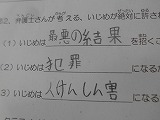 弁護士さんが考える、いじめが絶対に許さ
(1) いじめは 最悪の結果 を招く
(2) いじめは 犯罪 になる
(3) いじめは 人けんしん害 になる